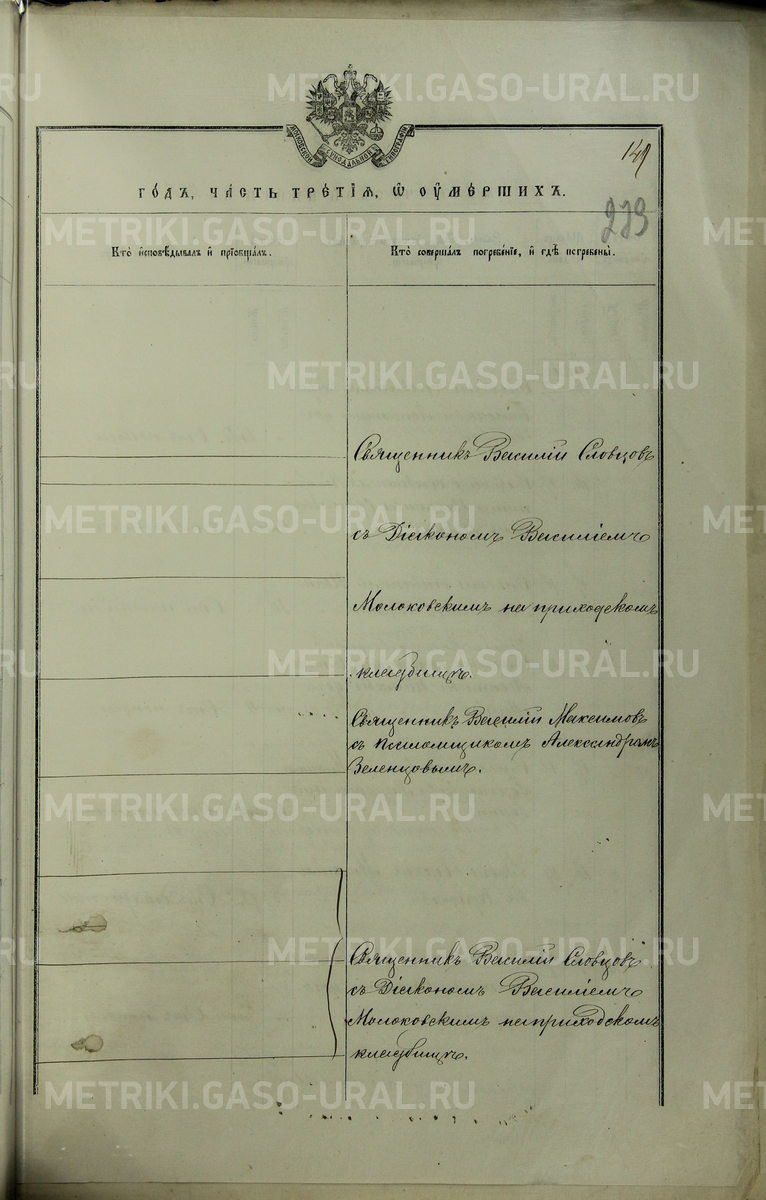 МОСКОВСКОЙ СѴНОДАЛЬНОЙ ТИПОГРАФІИ
149
ГОДЪ, ЧАСТЬ ТРЕТІѦ, Ѡ ОУМЕРШИХЪ.
239
Кто исповѣдывалъ и пріобщалъ.
Кто совершалъ погребеніе, и гдѣ погребены.
Священникъ Василій Словцовъ
съ Діакономъ Василіемъ
Молоковскимъ на приходскомъ
кладбищѣ.
Священникъ Василій Максимовъ
съ псаломщикомъ Александромъ
Зеленцовымъ.
Священникъ Василій Словцовъ
съ Діакономъ Василіемъ
Молоковскимъ на приходскомъ
кладбищѣ.
METRIKI.GASO-URAL.RU